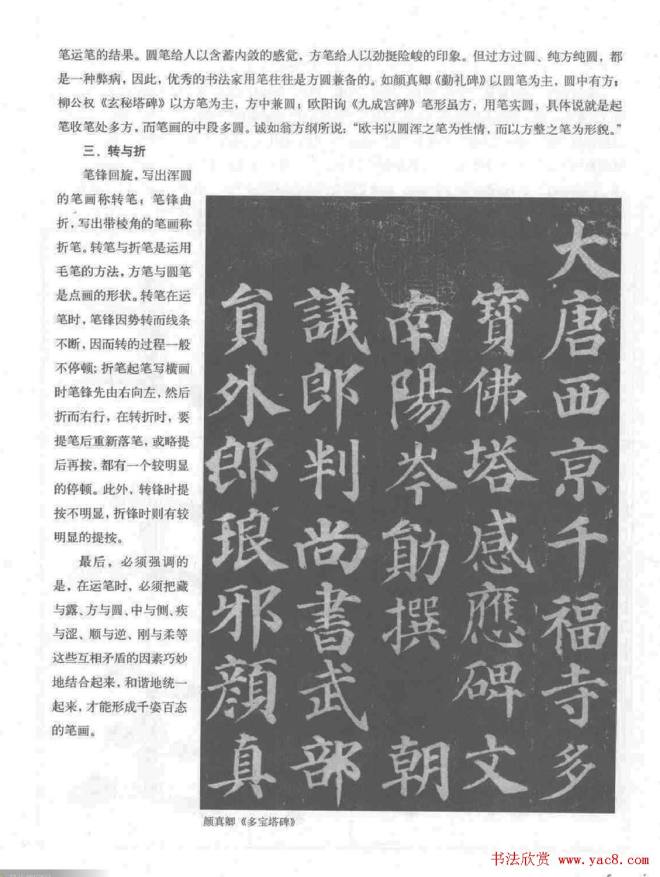 笔运笔的结果。圆笔给人以含蓄内敛的感觉，方笔给人以劲挺险峻的印象。但过方过圆、纯方纯圆，都
是一种弊病，因此，优秀的书法家用笔往往是方圆兼备的。如颜真卿《勤礼碑》以圆笔为主，圆中有方；
柳公权《玄秘塔碑》以方笔为主，方中兼圆；欧阳询《九成宫碑》笔形虽方，用笔实圆，具体说就是起
笔收笔处多方，而笔画的中段多圆。诚如翁方纲所说：“欧书以圆浑之笔为性情，而以方整之笔为形貌。”
三、转与折
笔锋回旋，写出浑圆
的笔画称转笔；笔锋曲
折，写出带棱角的笔画称
折笔。转笔与折笔是运用
毛笔的方法，方笔与圆笔
是点画的形状。转笔在运
笔时，笔锋因势转而线条
不断，因而转的过程一般
不停顿；折笔起笔写横画
时笔锋先由右向左，然后
折而右行，在转折时，要
提笔后重新落笔，或略提
后再按，都有一个较明显
的停顿。此外，转锋时提
按不明显，折锋时则有较
明显的提按。
最后，必须强调的
是，在运笔时，必须把藏
与露、方与圆、中与侧、疾
与涩、顺与逆、刚与柔等
这些互相矛盾的因素巧妙
地结合起来，和谐地统一
起来，才能形成千姿百态
的笔画。
大唐西京千福寺多
寶佛塔感應碑文
南陽岑勛撰 朝
議郎判尚書武部
員外郎琅邪顏真
颜真卿《多宝塔碑》
书法欣赏 www.yac8.com